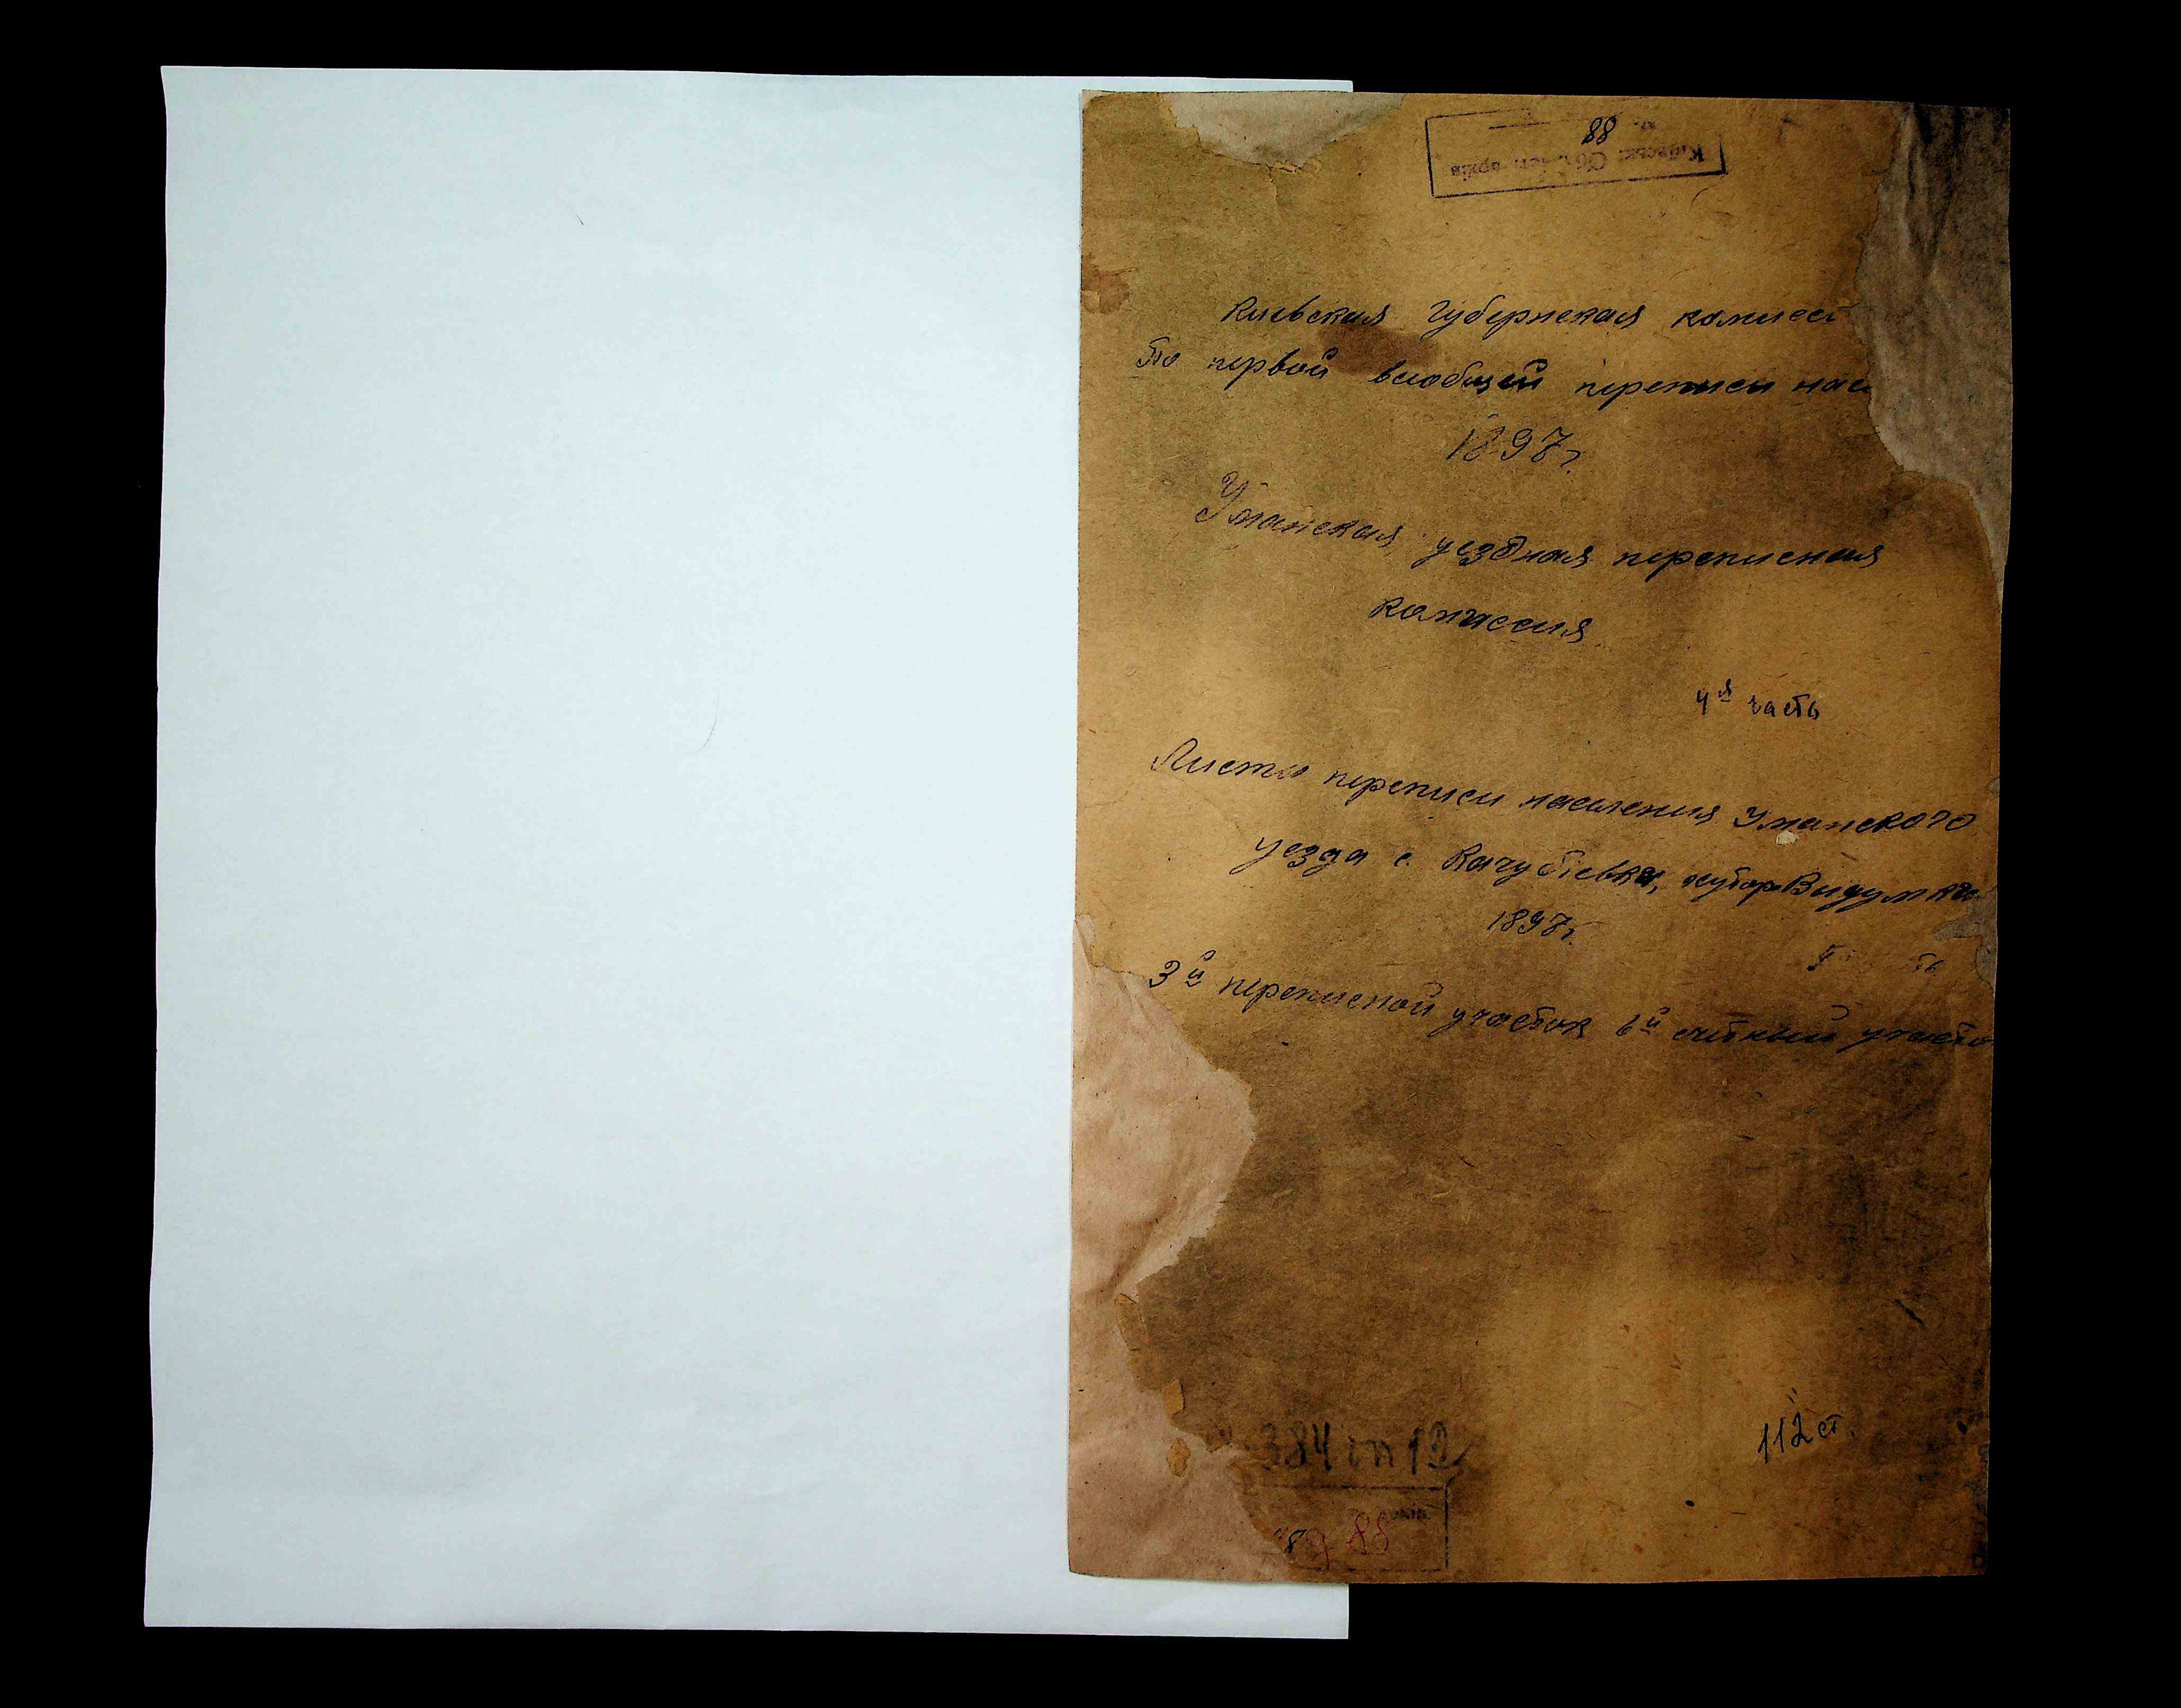 88
Киевская губернская комисси
По первой всеобщей переписи нас
1897 г.
Уманская уездная переписная
комиссия
4я часть
Листы переписи населения Уманского
уезда с. Качубіевка, хутор Видумка
1897 г.
3й переписной участок 6й счетный участо
112 ст.
384 оп 12
88